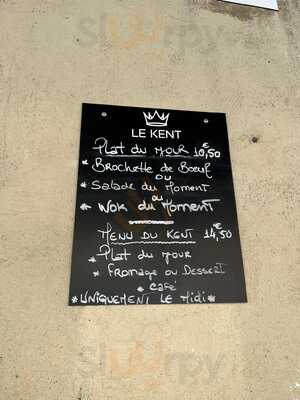 sluurpy
LE KENT
Plat du JOUR 10,50€
* Brochette de Bœuf
ou
* Salade du Moment
ou
* Wok du Moment
MENU DU KENT 14,50€
* Plat du JOUR
* Fromage ou Dessert
* Café
*UNIQUEMENT LE Midi*
sluurpy